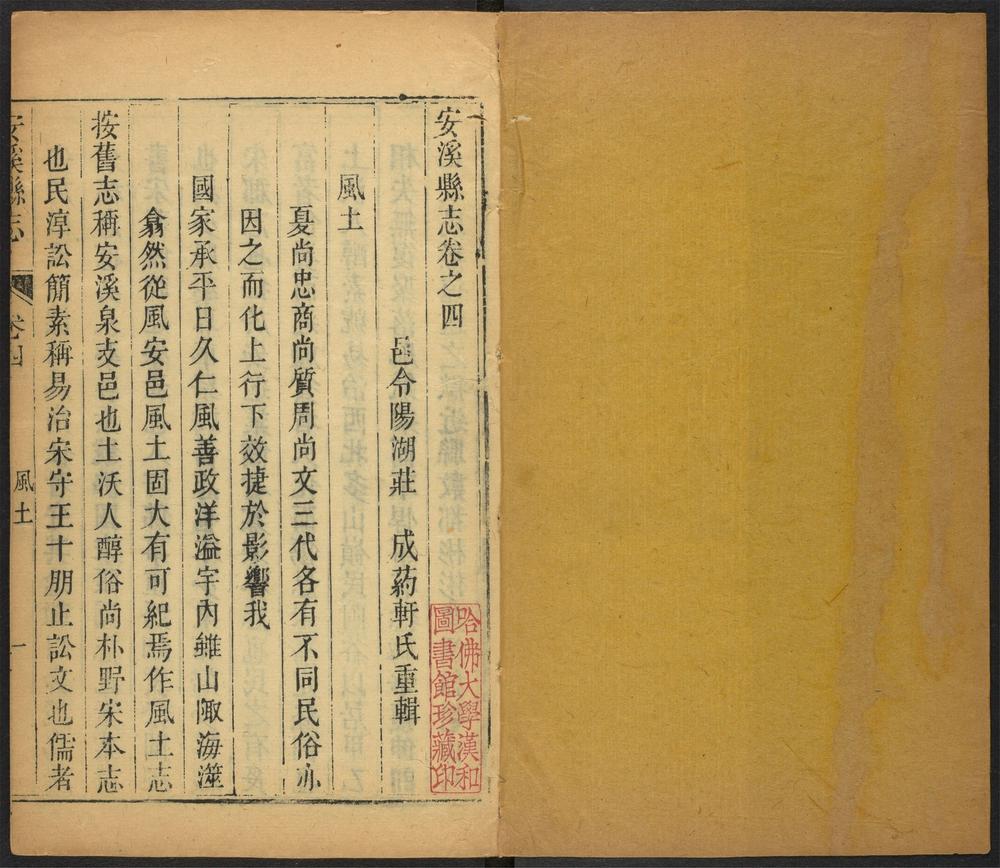 安溪縣志卷之四
邑令陽湖莊　成葯軒氏重輯
風土
夏尚忠商尚質周尚文三代各有不同民俗亦
因之而化上行下效捷於影響我
國家承平日久仁風善政洋溢宇內雖山陬海澨
翕然從風安邑風土固大有可紀焉作風土志
按舊志稱安溪泉支邑也土沃人醇俗尚朴野宋本志
也民淳訟簡素稱易治宋守王十朋止訟文也儒者
安溪縣志
卷四
風土
一
哈佛大學漢和
圖書館珍藏印